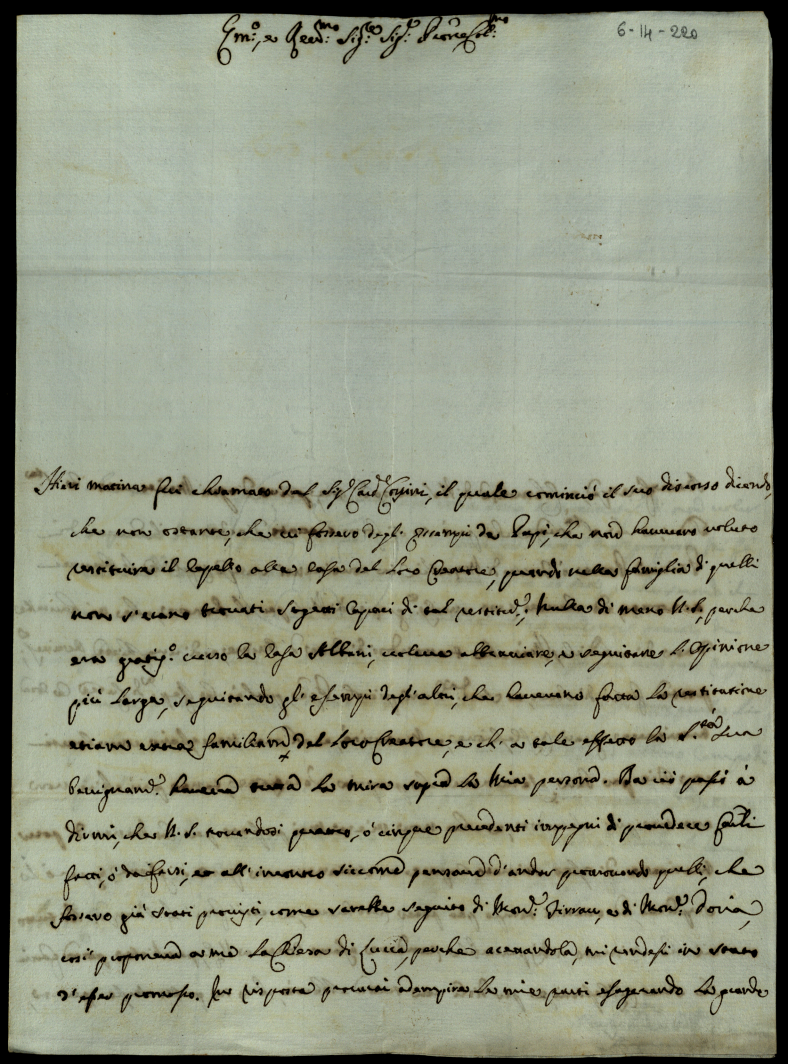 Em:º, e Reed:mo Sig:re Sig:re Pron̄e Col:mo
6-14-220
Hieri matina fui chiamato dal Sig.r Card.l Corsini, il quale cominciò il suo discorso dicendo,
che non ostante, che vi fossero degl' essempii de Papi, che non havevano voluto
restituire il Capello alla Casa del loro Creatore, quando nella famiglia di quelli
non s'erano trovati sogetti capaci di tal restitut.e, nulla di meno N. S., perche
era gratiss.º verso la Casa Albani, voleva abbracciare, e seguitare l'opinione
più larga, seguitando gl' esempii degl'altri, che havevano fatta la restitutione
etiam extra familiam, dal loro Creatore, e ch' a tale effetto la S.tà Sua
benignam.e haveva la mira sopra la mia persona. Da ciò passò à
dirmi, che N. S. trovandosi quattro, ò cinque precedenti impegni di promovere
fatti, ò da farsi, et all' incontro siccome pensava d'andar promovendo quelli, che
fossero già stati provisti, come sarebbe seguito di Mons.r e di Mons.r Doria,
così proponeva a me la Chiesa di Lucca, perche accettandola, mi rendessi in stato
d'esser promosso. In risposta procurai adempire le mie parti esagerando la grande